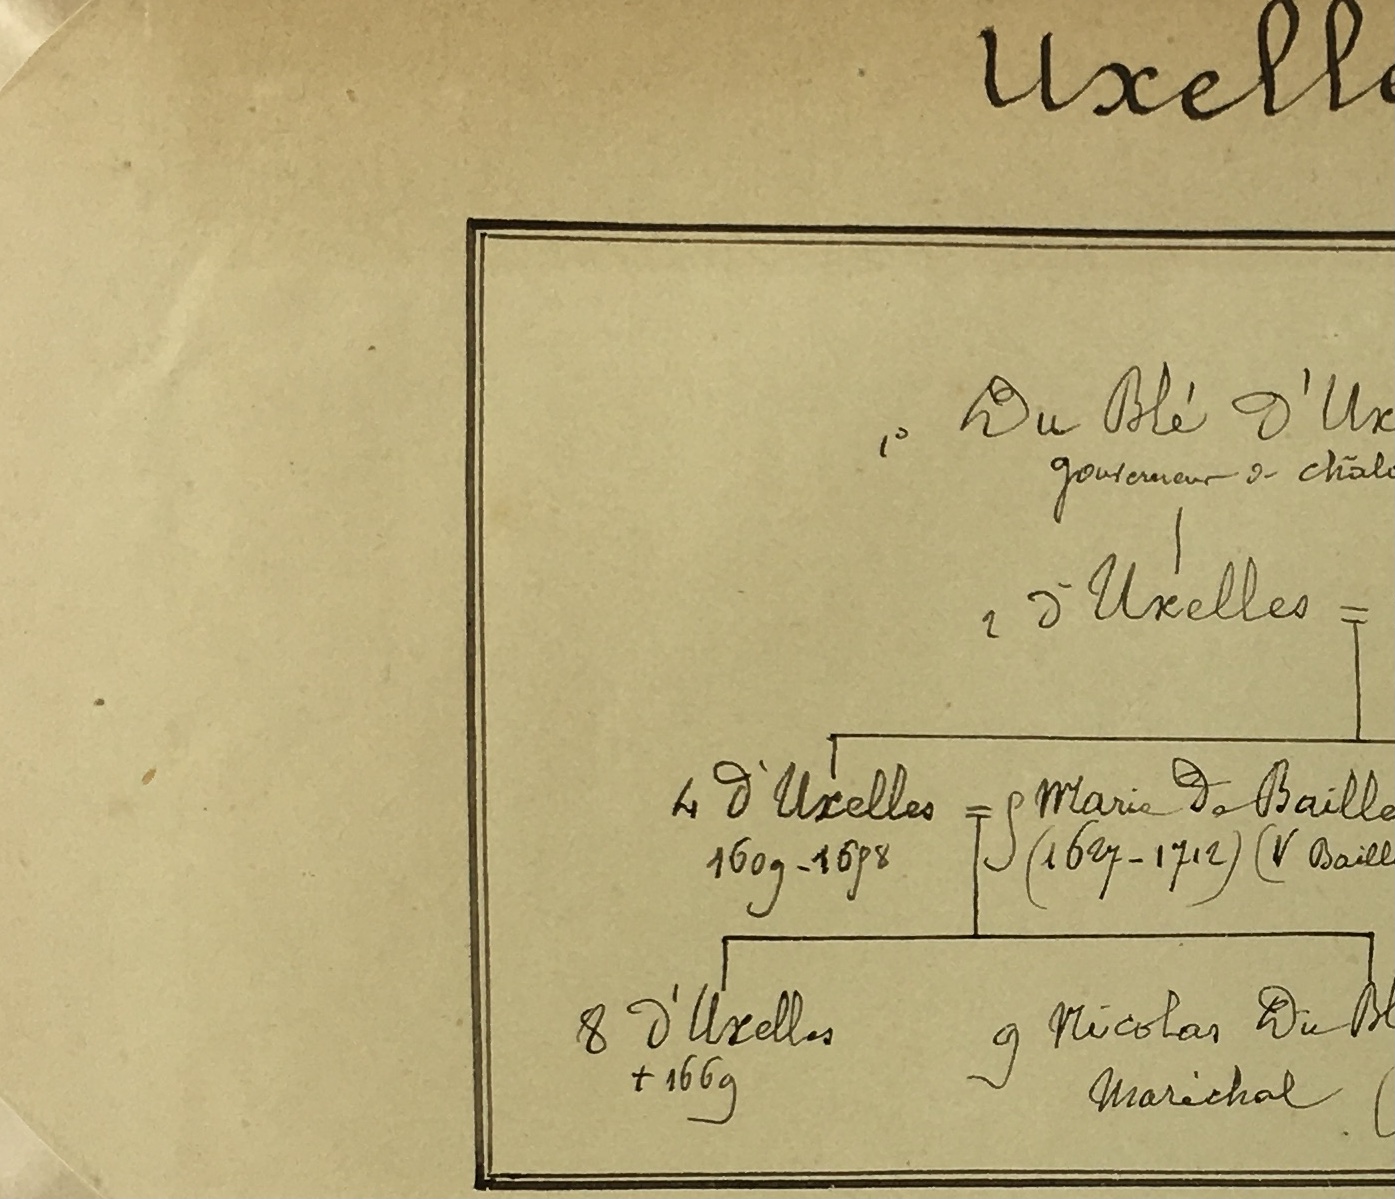 Uxelle
1° Du Blé D'Ux
gouverneur de châlo
2 d'Uxelles =
4 D'Uxelles = 5 Marie De Baille
1609-1658 (1627-1712) (V Baill
8 d'Uxelles 9 Nicolas Du Bl
+ 1669 Maréchal (